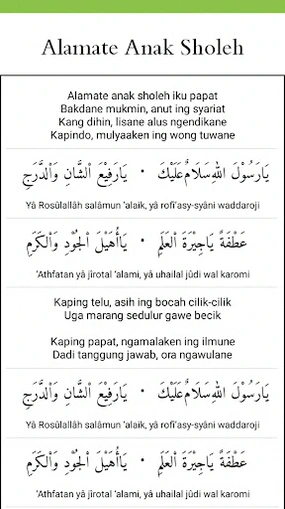 Alamate Anak Sholeh
Alamate anak sholeh iku papat
Bakdane mukmin, anut ing syariat
Kang dihin, lisane alus ngendikane
Kapindo, mulyaaken ing wong tuwane
يَارَسُوْلَ اللهِ سَلَامٌ عَلَيْكَ • يَارَفِيْعَ الْشَّانِ وَالْدَّرَجِ
Yâ Rosûlallâh salâmun 'alaik, yâ rofî'asy-syâni waddaroji
عَطْفَةً يَاجِيْرَةَ الْعَلَمِ • يَاأُهَيْلَ الْجُوْدِ وَالْكَرَمِ
'Athfatan yâ jîrotal 'alami, yâ uhailal jûdi wal karomi
Kaping telu, asih ing bocah cilik-cilik
Uga marang sedulur gawe becik
Kaping papat, ngamalaken ing ilmune
Dadi tanggung jawab, ora ngawulane
يَارَسُوْلَ اللهِ سَلَامٌ عَلَيْكَ • يَارَفِيْعَ الْشَّانِ وَالْدَّرَجِ
Yâ Rosûlallâh salâmun 'alaik, yâ rofî'asy-syâni waddaroji
عَطْفَةً يَاجِيْرَةَ الْعَلَمِ • يَاأُهَيْلَ الْجُوْدِ وَالْكَرَمِ
'Athfatan yâ jîrotal 'alami, yâ uhailal jûdi wal karomi